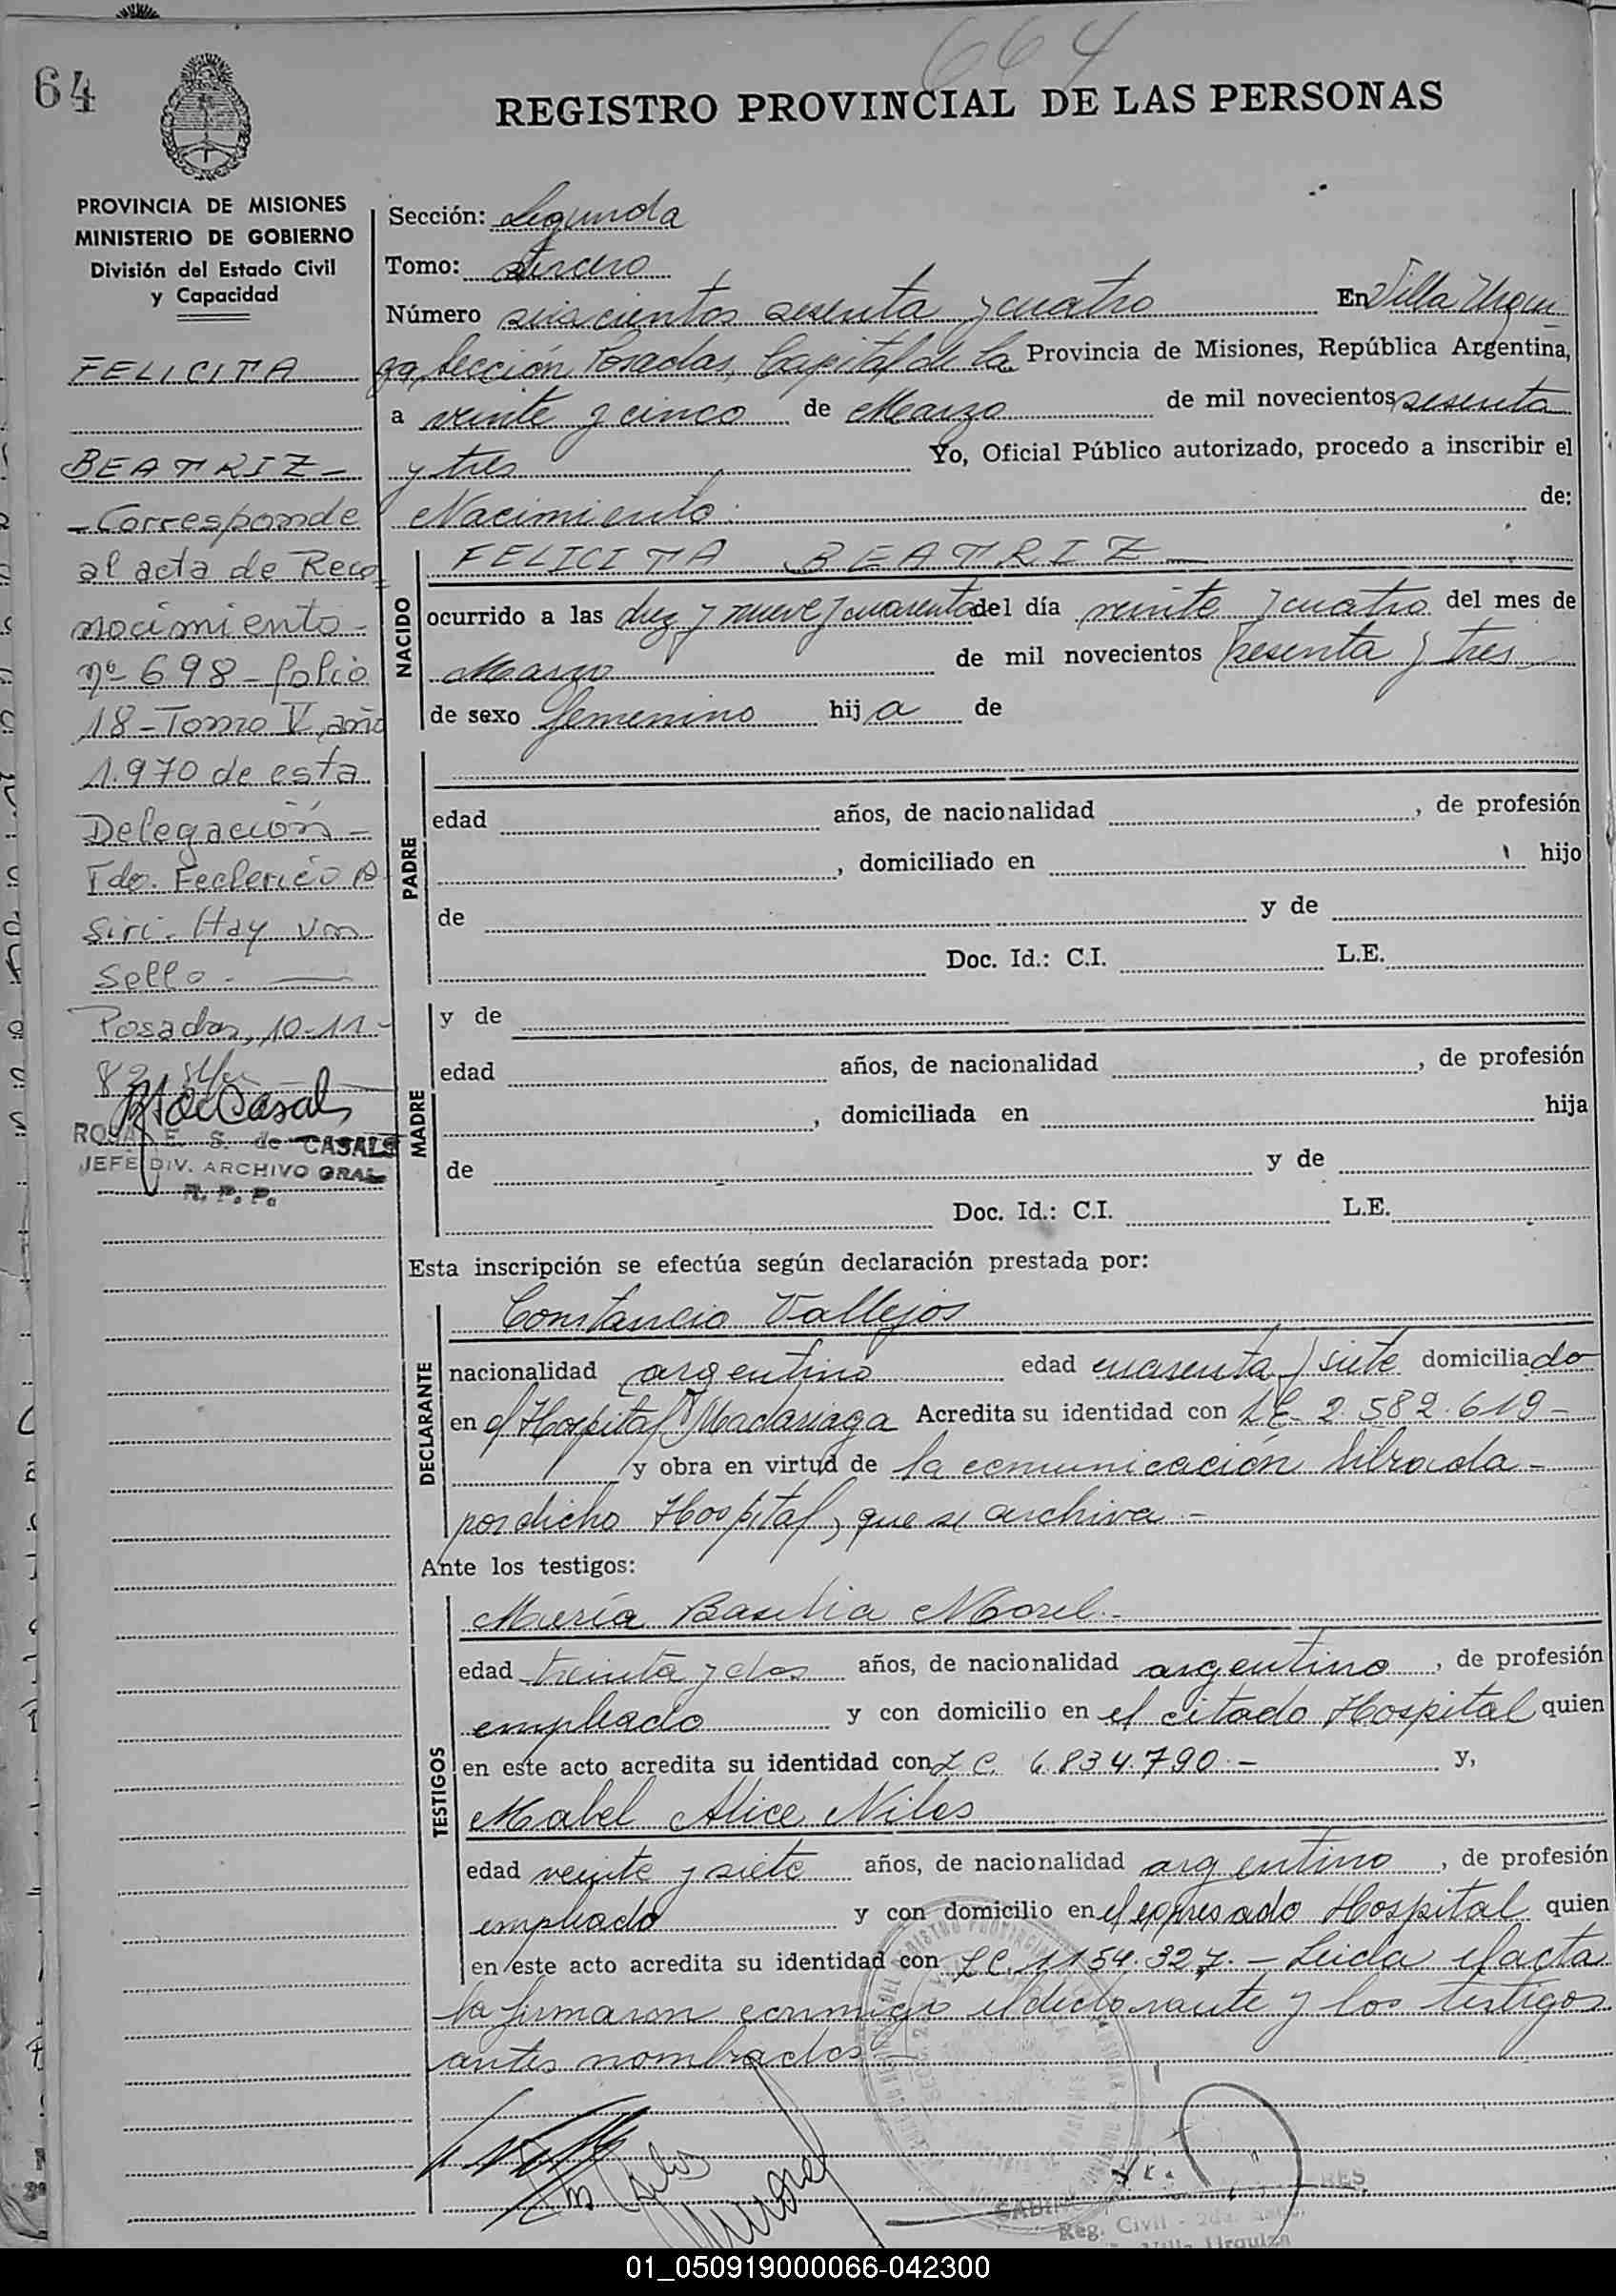 664
64
REGISTRO PROVINCIAL DE LAS PERSONAS
PROVINCIA DE MISIONES
MINISTERIO DE GOBIERNO
División del Estado Civil
y Capacidad
FELICITA
BEATRIZ -
- Corresponde
al acta de Reco-
nocimiento -
nº 698 - folio
18 - Tomo V, año
1.970 de esta
Delegación -
Fdo. Federico A
Siri. Hay un
Sello. -
Posadas, 10-11-
82
ROSA E. S. de CASALS
JEFE DIV. ARCHIVO GRAL
R. P. P.
Sección: Segunda
Tomo: tercero
Número seiscientos sesenta y cuatro En Villa Urqui-
za, Sección Posadas, Capital de la Provincia de Misiones, República Argentina,
a veinte y cinco de Marzo de mil novecientos sesenta
y tres Yo, Oficial Público autorizado, procedo a inscribir el
Nacimiento de:
NACIDO
FELICITA BEATRIZ
ocurrido a las diez y nueve y cuarenta del día veinte y cuatro del mes de
Marzo de mil novecientos sesenta y tres
de sexo femenino hija de
PADRE
edad años, de nacionalidad , de profesión
, domiciliado en hijo
de y de
Doc. Id.: C.I. L.E.
MADRE
y de
edad años, de nacionalidad , de profesión
, domiciliada en hija
de y de
Doc. Id.: C.I. L.E.
Esta inscripción se efectúa según declaración prestada por:
DECLARANTE
Constancio Vallejos
nacionalidad argentino edad cuarenta y siete domiciliado
en el Hospital Madariaga Acredita su identidad con L.E. 2.582.619 -
y obra en virtud de la comunicación librada -
por dicho Hospital, que se archiva. -
Ante los testigos:
TESTIGOS
María Basilia Morel. -
edad treinta y dos años, de nacionalidad argentino , de profesión
empleado y con domicilio en el citado Hospital quien
en este acto acredita su identidad con L C. 6.834.790. - y,
Mabel Alice Niles
edad veinte y siete años, de nacionalidad argentino , de profesión
empleado y con domicilio en el expresado Hospital quien
en este acto acredita su identidad con L C. 1154.327. - Leida el acta
la firmaron conmigo el declarante y los testigos
antes nombrados
Reg. Civil - 2da.
Villa Urquiza
01_050919000066-042300